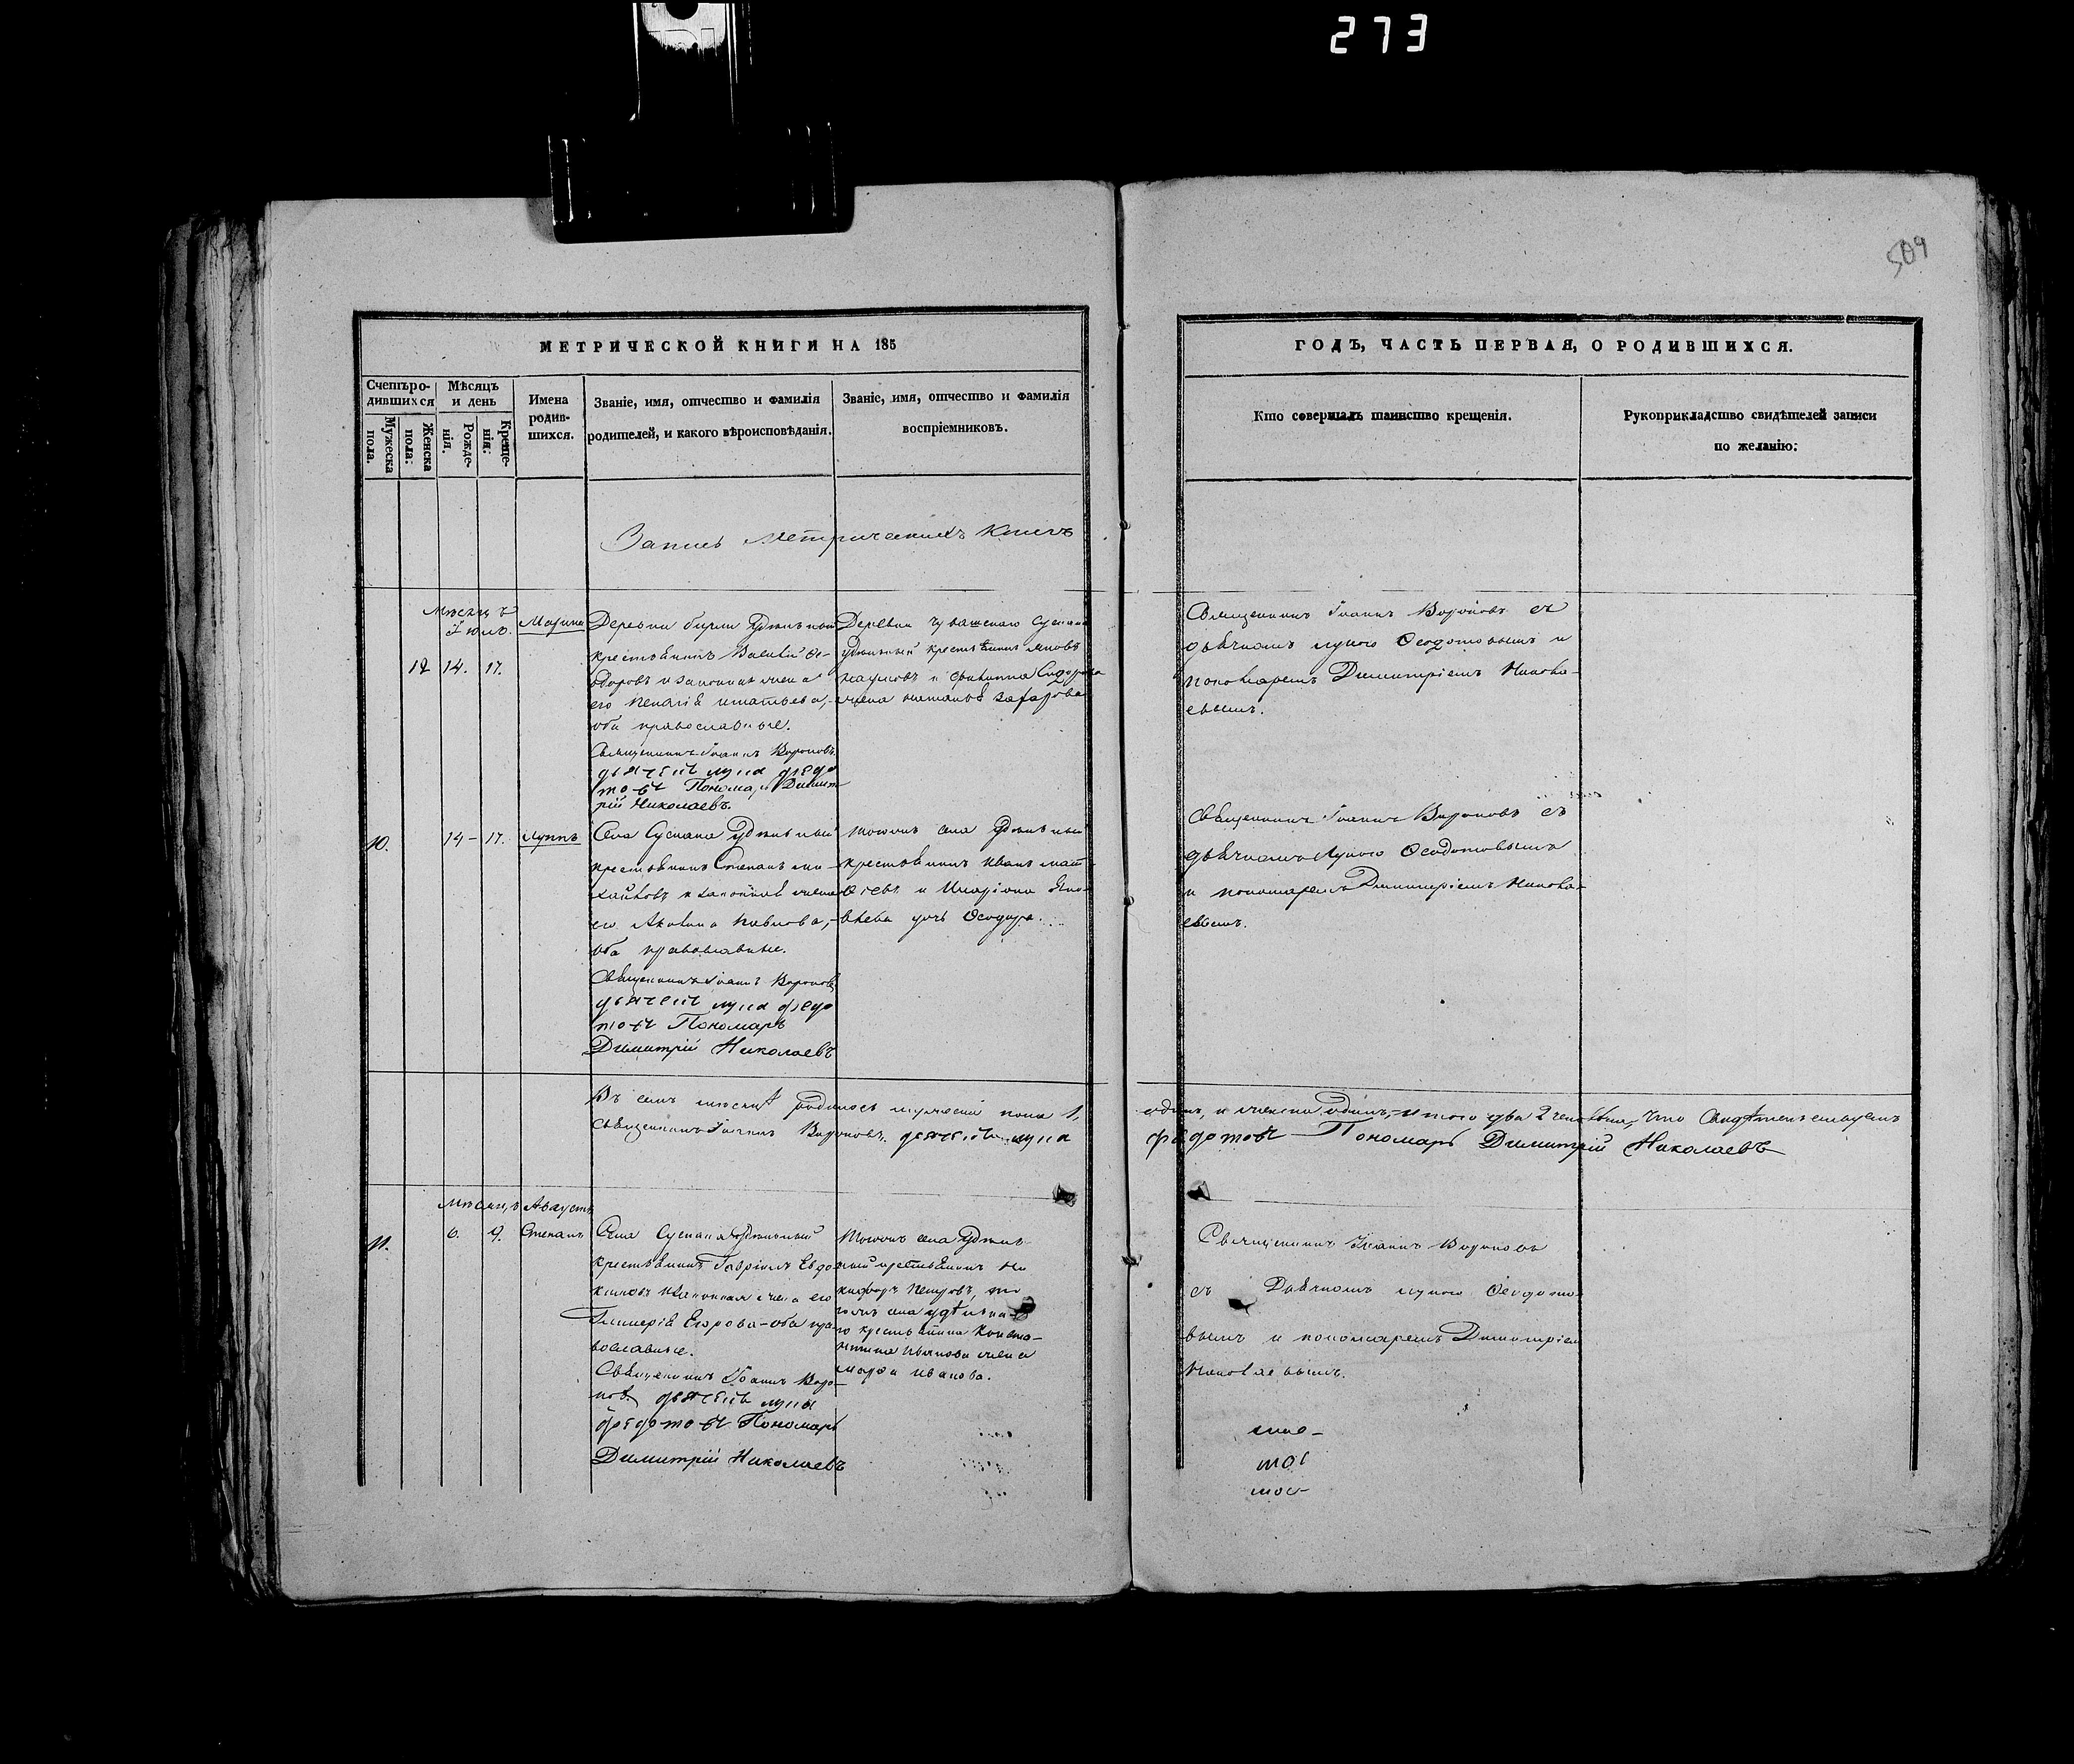 273
509
МЕТРИЧЕСКОЙ КНИГИ НА 185
ГОДЪ, ЧАСТЬ ПЕРВАЯ, О РОДИВШИХСЯ.
Счетъ ро-
дившихся
Мужеска
пола.
Женска
пола:
Мѣсяцъ
и день
Рожде-
нія.
Креще-
нія:
Имена
родив-
шихся.
Званіе, имя, отчество и фамилія
родителей, и какого вѣроисповѣданія.
Званіе, имя, отчество и фамилія
воспріемниковъ.
Кто совершалъ таинство крещенія.
Рукоприкладство свидѣтелей записи
по желанію:
Запись Метрическихъ Книгъ
Мѣсяцъ
Іюль.
12 14. 17.
Марина
Деревни удѣльный
крестьянинъ Василій Ѳе-
доровъ и законная жена
его Игнатьева,
оба православные.
Священникъ Іоаннъ Вороновъ
дьячекъ лука федо
товъ Пономарь Димит
рій Николаевъ
Деревни Чувашскаго Сускана
удѣльный крестьянинъ
Наумовъ и Сидорова
жена Захарова
Священникъ Іоаннъ Вороновъ съ
дьячкомъ лукою Ѳеодотовымъ и
пономаремъ Димитріемъ Никола-
евымъ.
10. 14 - 17.
Луппъ
Села Сускана удѣльный
крестьянинъ Степанъ ми-
хайловъ и законная жена
его Акилина Павлова,
оба православные.
Священникъ Іоаннъ Вороновъ
дьячекъ лука федо
товъ Пономарь
Димитрій Николаевъ
Тогожъ села удѣльный
крестьянинъ Иванъ мат-
ѳеевъ и дочь Ѳеодора.
Священникъ Іоаннъ Вороновъ съ
дьячкомъ Лукою Ѳеодотовымъ
и пономаремъ Димитріемъ Никола-
евымъ.
Въ семъ мѣсяцѣ родилось мужеска пола 1, одинъ, и женска одинъ, итого два 2 человѣка, Что свидѣтельствуемъ
священникъ Іоаннъ Вороновъ. дьячекъ лука федотовъ Пономарь Димитрій Николаевъ
Мѣсяцъ Августъ
11. 6. 9.
Степанъ
Села Сускана удѣльный
крестьянинъ Гавріилъ Евдо
кимовъ и законная жена его
Гликерія Егорова - оба пра
вославные.
Священникъ Іоаннъ Воро-
новъ. дьячекъ лука
федотовъ Пономарь
Димитрій Николаевъ
Тогожъ села удѣль-
ный крестьянинъ Ни
кифоръ Петровъ, то
гожъ села удѣльна-
го крестьянина Конста-
нтина Иванова жена
марѳа иванова.
Священникъ Іоаннъ Вороновъ
съ Дьячкомъ лукою Ѳеодото-
вымъ и пономаремъ Димитріем
Николаевымъ.